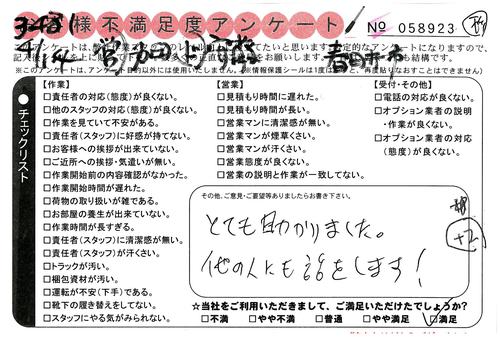 様不満足度アンケート
No 058923
春日井市
チェックリスト
【作業】
□責任者の対応(態度)が良くない。
□他のスタッフの対応(態度)が良くない。
□作業を見ていて不安がある。
□責任者(スタッフ)に好感が持てない。
□お客様への挨拶が出来ていない。
□ご近所への挨拶・気遣いが無い。
□作業開始前の内容確認がなかった。
□作業開始時間が遅れた。
□荷物の取り扱いが雑である。
□お部屋の養生が出来ていない。
□作業時間が長すぎる。
□責任者(スタッフ)に清潔感が無い。
□責任者(スタッフ)が汗くさい。
□トラックが汚い。
□梱包資材が汚い。
□運転が不安(下手)である。
□靴下の履き替えをしてない。
□スタッフにやる気がみられない。
【営業】
□見積もり時間に遅れた。
□見積もり時間が長い。
□営業マンに清潔感が無い。
□営業マンが煙草くさい。
□営業マンが汗くさい。
□営業態度が良くない。
□営業の説明と作業が一致してない。
【受付・その他】
□電話の対応が良くない。
□オプション業者の説明
・作業が良くない。
□オプション業者の対応
(態度)が良くない。
その他、ご意見・ご要望等ありましたらお書き下さい。
とても助かりました。
他の人にも話をします!
+2
☆当社をご利用いただきまして、ご満足いただけたでしょうか?
□不満 □やや不満 □普通 □やや満足 □満足